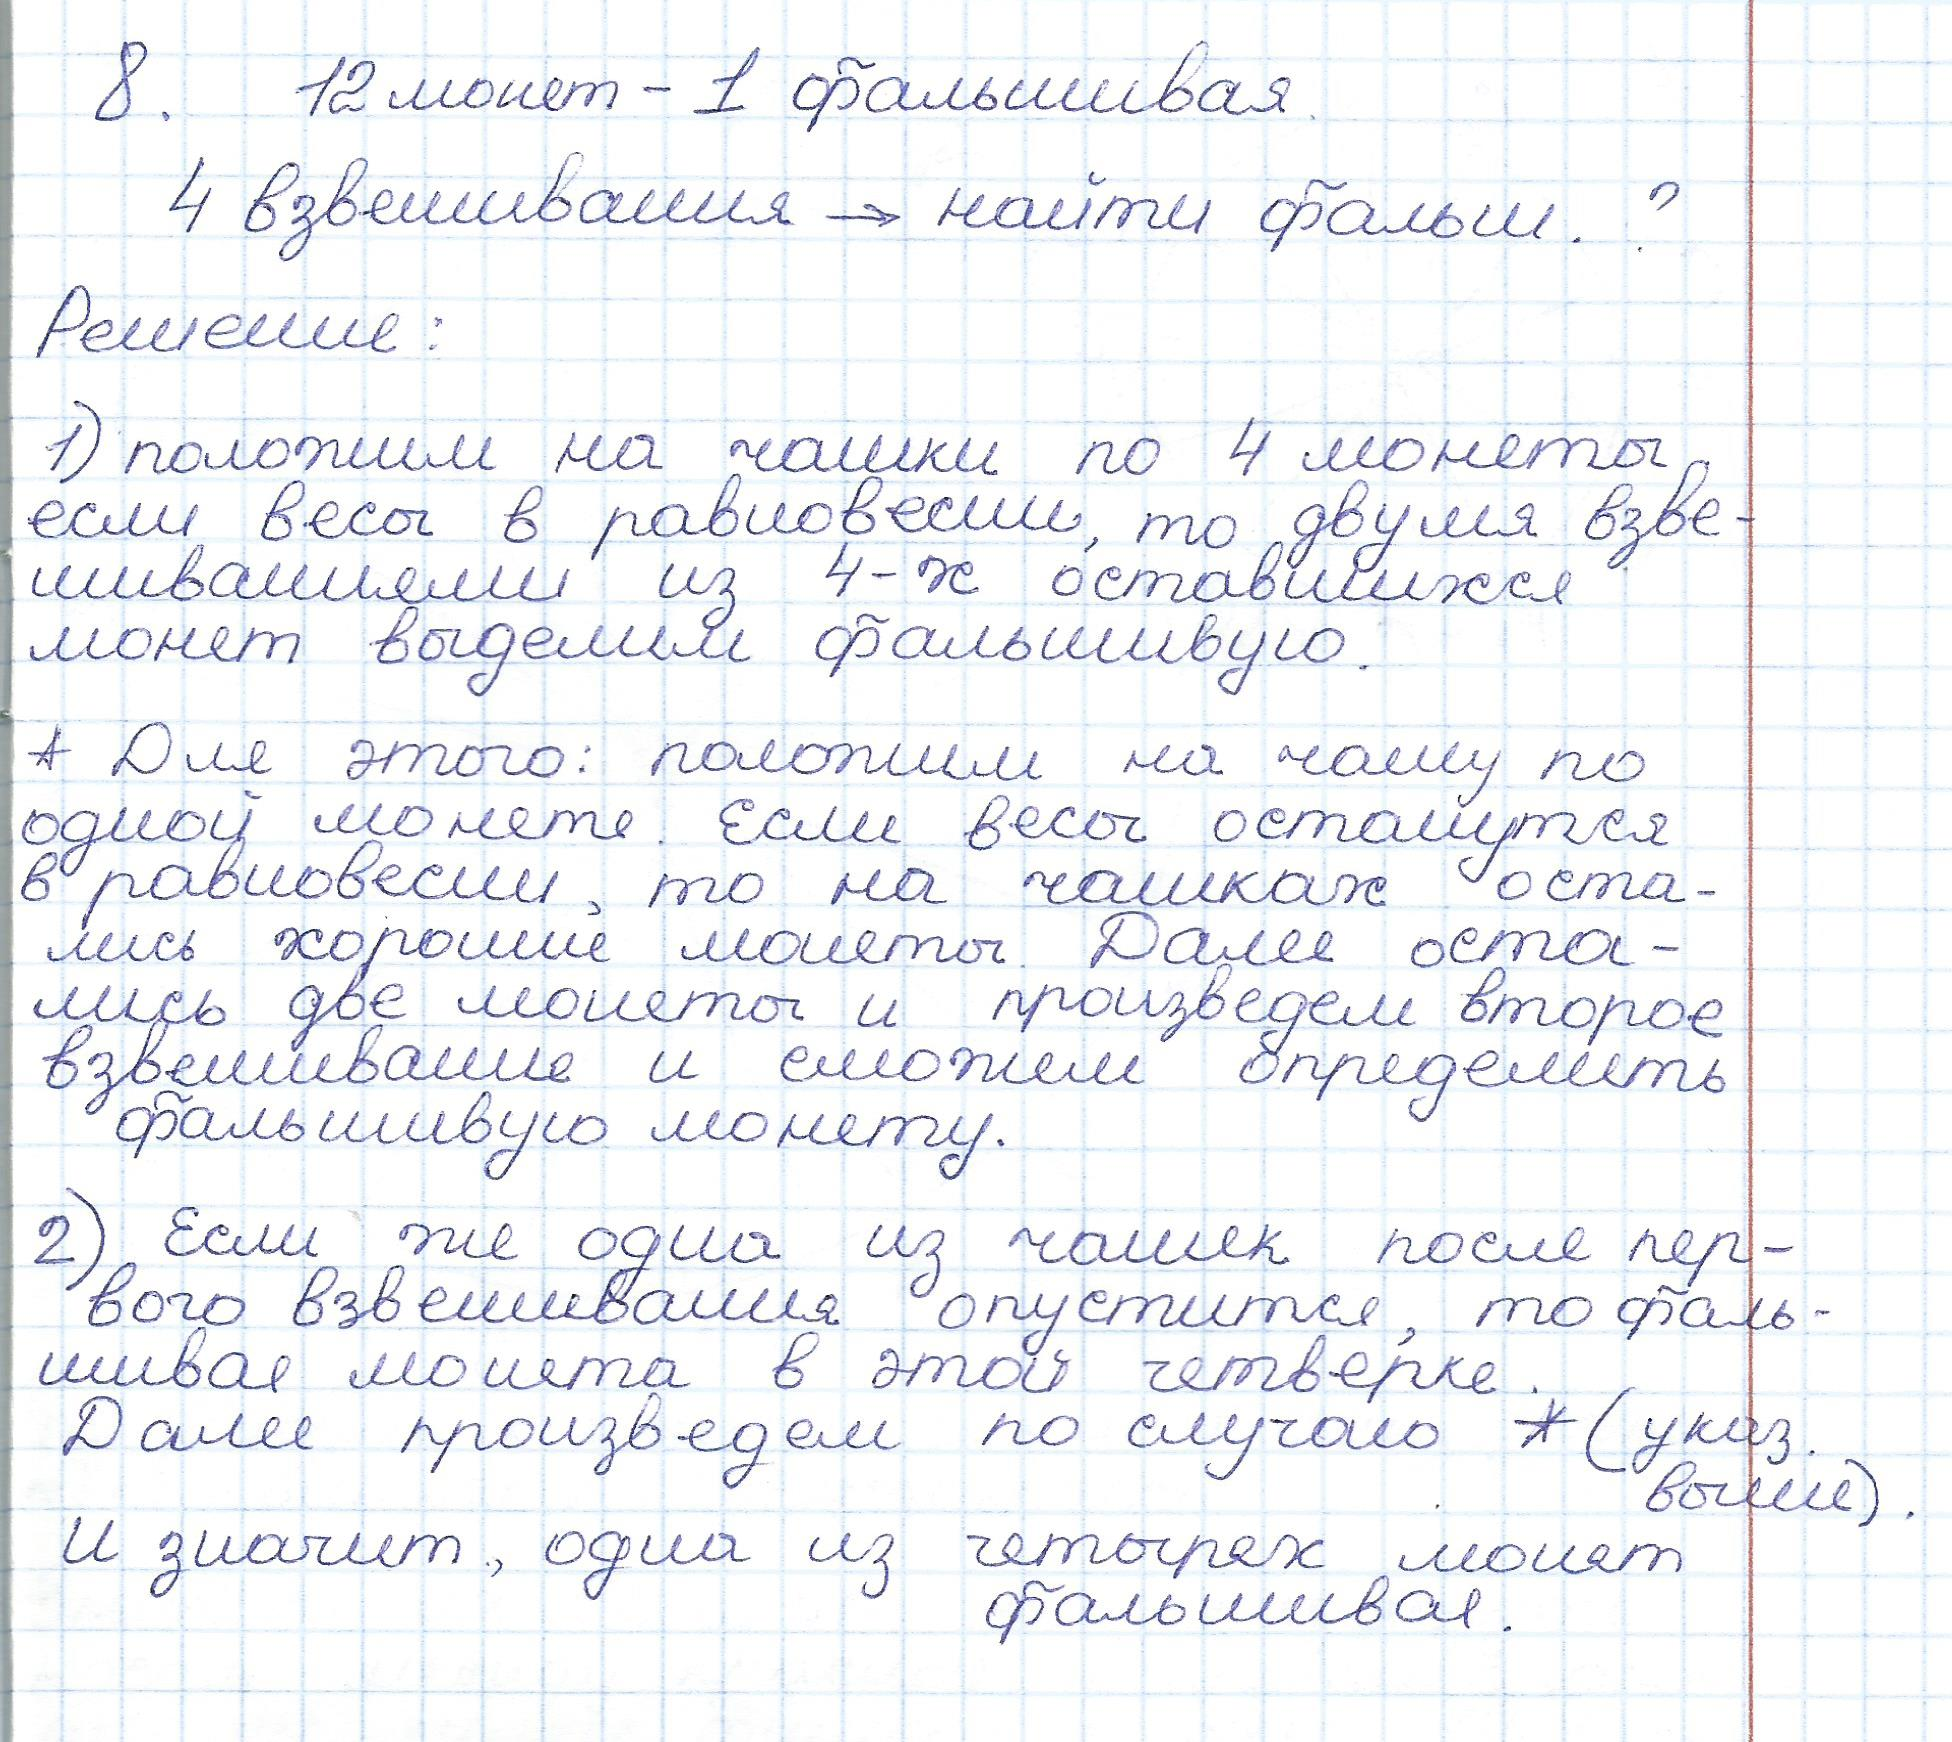 8. 12 монет - 1 фальшивая.
4 взвешивания → найти фальш. ?
Решение:
1) положим на чашки по 4 монеты,
если весы в равновесии, то двумя взве-
шиваниями из 4-х оставшихся
монет выделим фальшивую.
* Для этого: положим на чашу по
одной монете. Если весы останутся
в равновесии, то на чашках оста-
лись хорошие монеты. Далее оста-
лись две монеты и произведем второе
взвешивание и сможем определить
фальшивую монету.
2) Если же одна из чашек после пер-
вого взвешивания опустится, то фаль-
шивая монета в этой четверке.
Далее произведем по случаю * (указ.
выше).
И значит, одна из четырех монет
фальшивая.